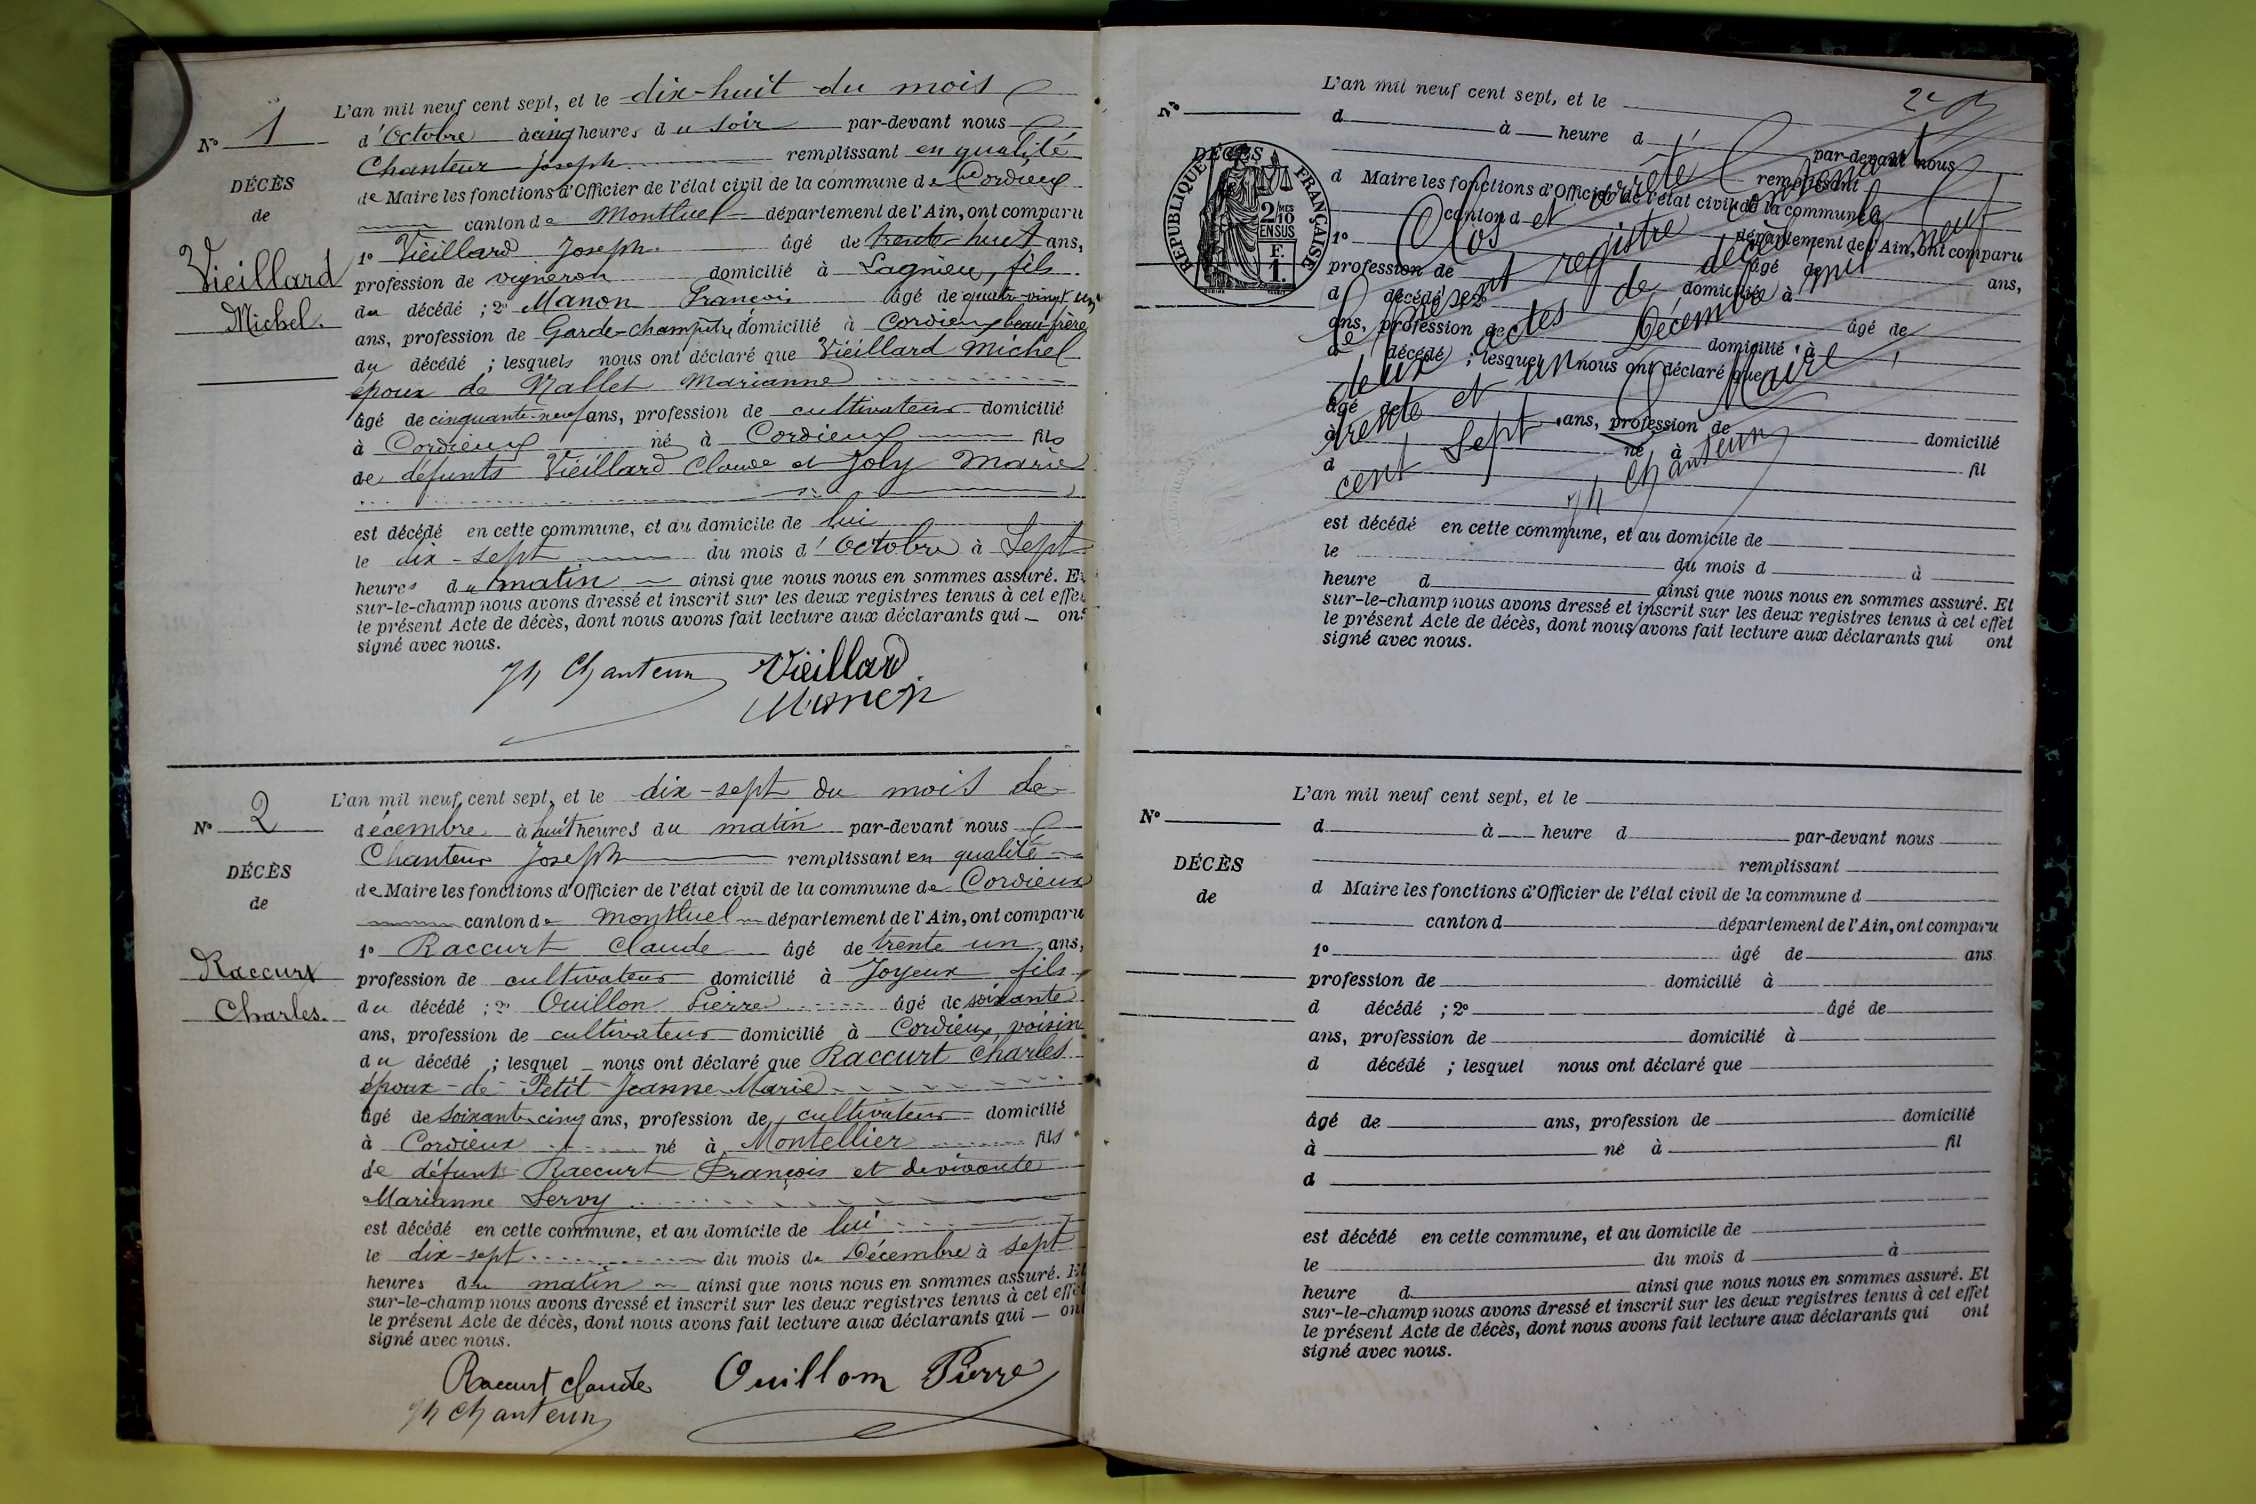 L'an mil neuf cent sept, et le dix-huit du mois
N° 1
d'Octobre à cinq heures du soir par-devant nous
Chanteur Joseph remplissant en qualité
DÉCÈS
de Maire les fonctions d'Officier de l'état civil de la commune de Cordieux
de
canton de Montluel département de l'Ain, ont comparu
1° Vieillard Joseph âgé de trente-huit ans,
Vieillard
profession de vigneron domicilié à Lagnieu, fils
Michel.
du décédé ; 2° Manon François âgé de quatre-vingt
ans, profession de Garde-champêtre domicilié à Cordieux beau-frère
du décédé ; lesquels nous ont déclaré que Vieillard Michel
époux de Mallet Marianne
âgé de cinquante-neuf ans, profession de cultivateur domicilié
à Cordieux né à Cordieux fils
de défunts Vieillard Claude et Joly Marie
est décédé en cette commune, et au domicile de lui
le dix-sept du mois d'Octobre à Sept
heures du matin ainsi que nous nous en sommes assuré. Et
sur-le-champ nous avons dressé et inscrit sur les deux registres tenus à cet effet
le présent Acte de décès, dont nous avons fait lecture aux déclarants qui ont
signé avec nous.
Jh Chanteur Vieillard
Manon
L'an mil neuf cent sept, et le dix-sept du mois de
N° 2
décembre à huit heures du matin par-devant nous
Chanteur Joseph remplissant en qualité
DÉCÈS
de Maire les fonctions d'Officier de l'état civil de la commune de Cordieux
de
canton de Montluel département de l'Ain, ont comparu
1° Raccurt Claude âgé de trente un ans,
Raccurt
profession de cultivateur domicilié à Joyeux fils
Charles.
du décédé ; 2° Ouillon Pierre âgé de soixante
ans, profession de cultivateur domicilié à Cordieux, voisin
du décédé ; lesquel nous ont déclaré que Raccurt Charles
époux de Petit Jeanne Marie
âgé de soixante-cinq ans, profession de cultivateur domicilié
à Cordieux né à Montellier fils
de défunt Raccurt François et de vivante
Marianne Servy
est décédé en cette commune, et au domicile de lui
le dix-sept du mois de Décembre à sept
heures du matin ainsi que nous nous en sommes assuré. Et
sur-le-champ nous avons dressé et inscrit sur les deux registres tenus à cet effet
le présent Acte de décès, dont nous avons fait lecture aux déclarants qui ont
signé avec nous.
Raccurt Claude Ouillon Pierre
Jh Chanteur
2e
L'an mil neuf cent sept, et le
N°
d à heure d par-devant nous
DÉCÈS
remplissant
d Maire les fonctions d'Officier de l'état civil de la commune d
canton d département de l'Ain, ont comparu
RÉPUBLIQUE FRANÇAISE
2/10 MES
EN SUS
F.
1
1° âgé de ans,
profession de domicilié à
d décédé ; 2° âgé de
ans, profession de domicilié à
d décédé ; lesquel nous ont déclaré que
âgé de ans, profession de domicilié
à né à fil
d
Clos et arrêté
le présent registre contenant
deux actes de décès le
trente et un Décembre mil neuf
cent sept.
Le Maire,
Jh Chanteur
est décédé en cette commune, et au domicile de
le du mois d à
heure d ainsi que nous nous en sommes assuré. Et
sur-le-champ nous avons dressé et inscrit sur les deux registres tenus à cet effet
le présent Acte de décès, dont nous avons fait lecture aux déclarants qui ont
signé avec nous.
L'an mil neuf cent sept, et le
N°
d à heure d par-devant nous
remplissant
DÉCÈS
d Maire les fonctions d'Officier de l'état civil de la commune d
de
canton d département de l'Ain, ont comparu
1° âgé de ans
profession de domicilié à
d décédé ; 2° âgé de
ans, profession de domicilié à
d décédé ; lesquel nous ont déclaré que
âgé de ans, profession de domicilié
à né à fil
d
est décédé en cette commune, et au domicile de
le du mois d à
heure d ainsi que nous nous en sommes assuré. Et
sur-le-champ nous avons dressé et inscrit sur les deux registres tenus à cet effet
le présent Acte de décès, dont nous avons fait lecture aux déclarants qui ont
signé avec nous.